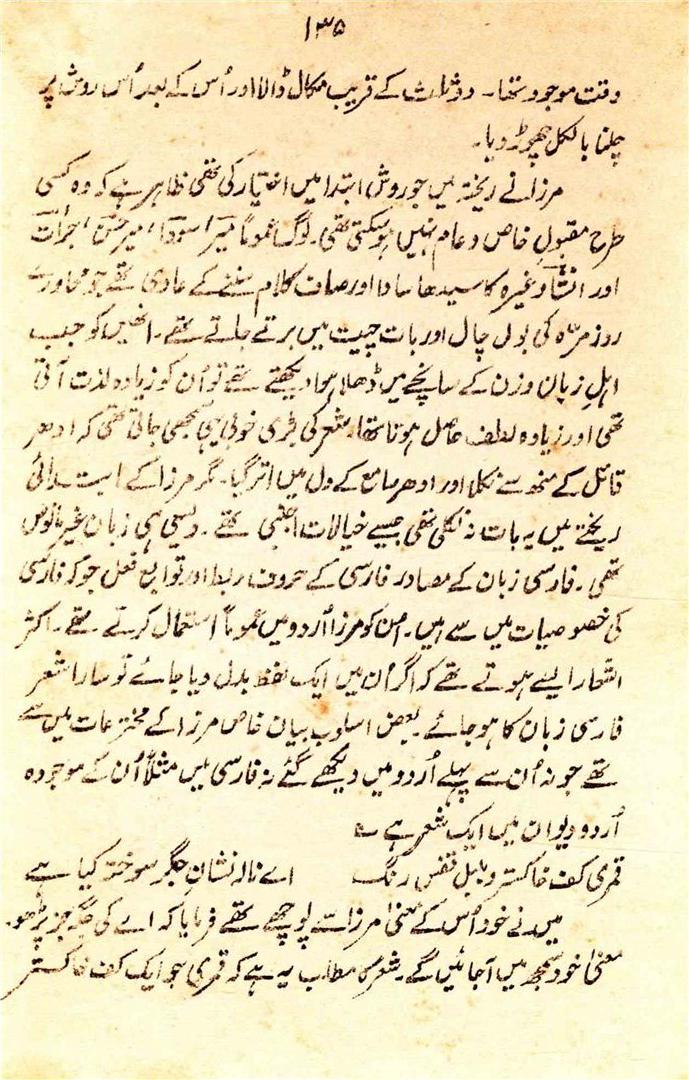 ۱۳۵
وقت موجود تھا۔ دو ثلث کے قریب نکال ڈالا اور اُس کے بعد اُس روش پر
چلنا بالکل چھوڑ دیا۔
مرزا نے ریختہ میں جو روش ابتدا میں اختیار کی تھی ظاہر ہے کہ وہ کسی
طرح مقبولِ خاص و عام نہیں ہو سکتی تھی۔ لوگ عموماً میر، سودا، میر حسن، جرأت
اور انشا وغیرہ کا سیدھا سادا اور صاف کلام سننے کے عادی تھے جو محاورے
روز مرّہ کی بول چال اور بات چیت میں برتے جاتے تھے۔ انھیں کو جب
اہلِ زبان وزن کے سانچے میں ڈھلا ہوا دیکھتے تھے تو اُن کو زیادہ لذت آتی
تھی اور زیادہ لطف حاصل ہوتا تھا۔ شعر کی بڑی خوبی یہی سمجھی جاتی تھی کہ ادھر
قائل کے منھ سے نکلا اور ادھر سامع کے دل میں اتر گیا۔ مگر مرزا کے ابتدائی
ریختے میں یہ بات نہ نکلی تھی جیسے خیالات اجنبی تھے۔ ویسی ہی زبان غیر مانوس
تھی۔ فارسی زبان کے مصادر فارسی کے حروف ربط اور توابع فعل جو کہ فارسی
کی خصوصیات میں سے ہیں۔ اُن کو مرزا اُردو میں عموماً استعمال کرتے تھے۔ اکثر
اشعار ایسے ہوتے تھے کہ اگر اُن میں ایک لفظ بدل دیا جائے تو سارا شعر
فارسی زبان کا ہو جائے۔ بعض اسلوب بیان خاص مرزا کے مخترعات میں سے
تھے جو نہ اُن سے پہلے اُردو میں دیکھے گئے نہ فارسی میں مثلاً اُن کے موجودہ
اُردو دیوان میں ایک شعر ہے ؎
قمری کف خاکستر و بلبل قفس رنگ اے نالہ نشانِ جگر سوختہ کیا ہے
میں نے خود اُس کے معنیٰ مرزا سے پوچھے تھے فرمایا کہ اے کی جگہ جز پڑھو۔
معنیٰ خود سمجھ میں آجائیں گے۔ شعر کا مطلب یہ ہے کہ قمری جو ایک کف خاکستر